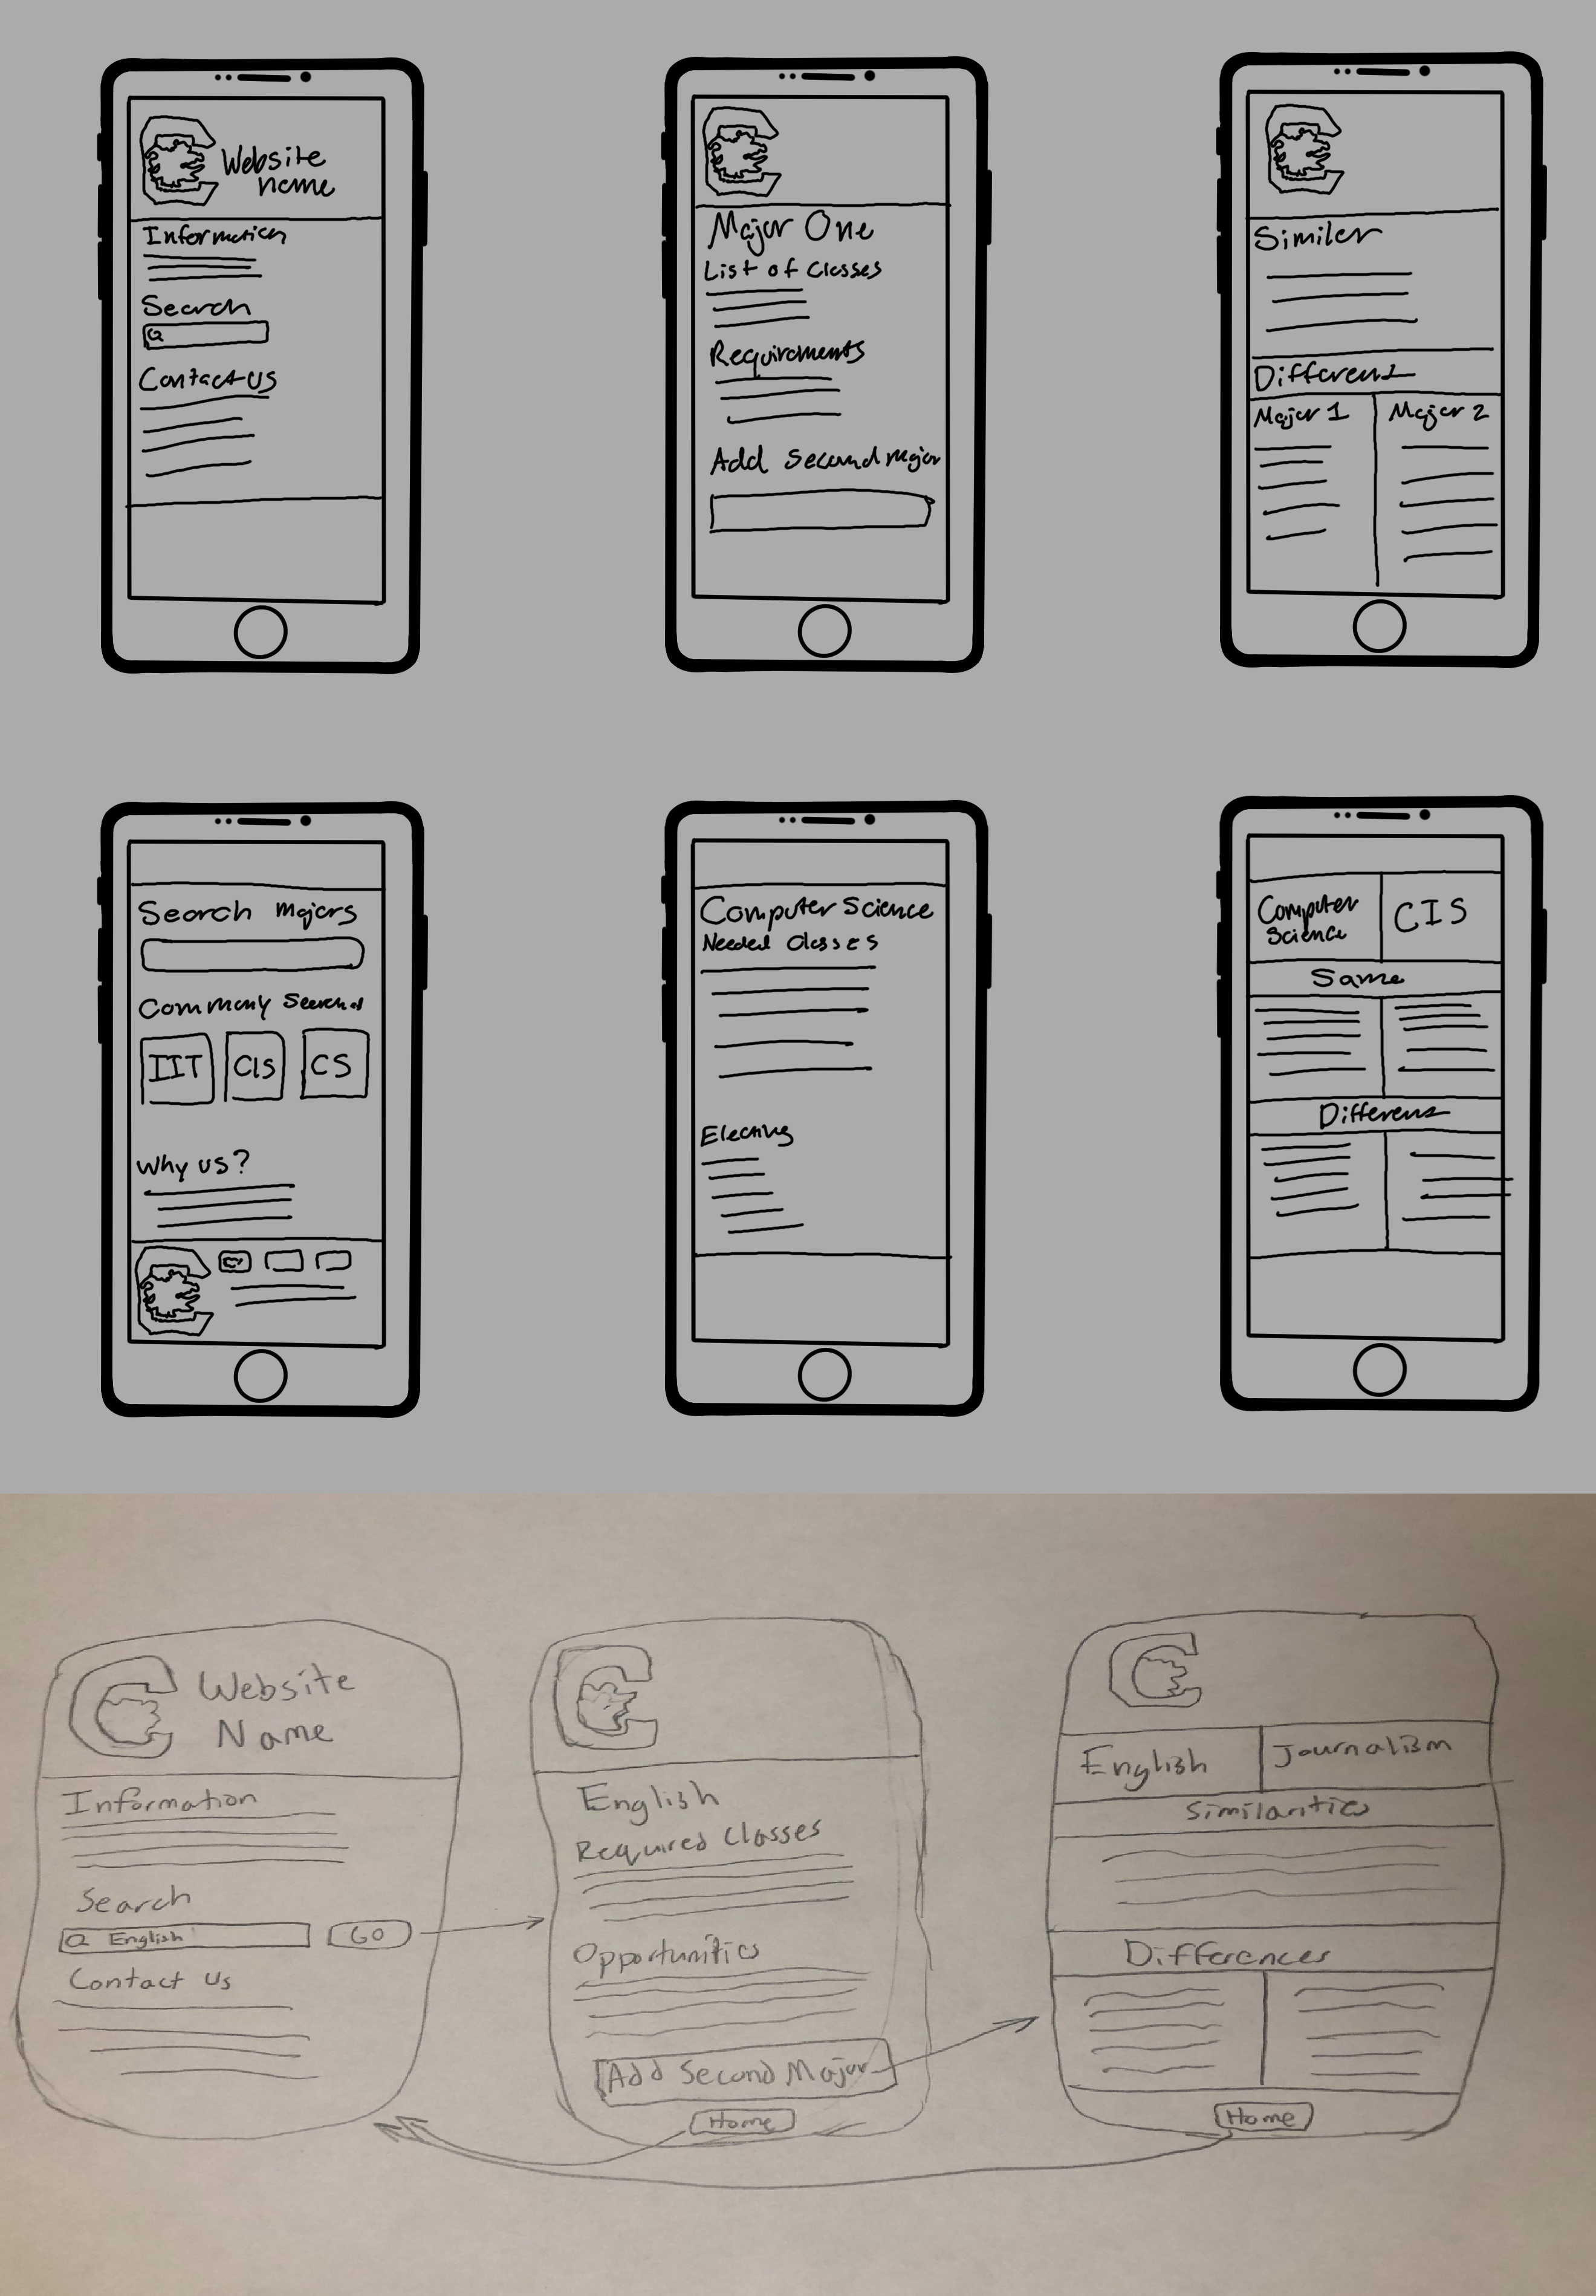 Website
name
Information
Search
Contact us
Major One
List of Classes
Requirements
Add Second Major
Similar
Different
Major 1
Major 2
Search Majors
Commonly Searched
IIT
CIS
CS
Why us?
Computer Science
Needed Classes
Electives
Computer
Science
CIS
Same
Different
Website
Name
Information
Search
English
GO
Contact Us
English
Required Classes
Opportunities
Add Second Major
Home
English
Journalism
Similarities
Differences
Home